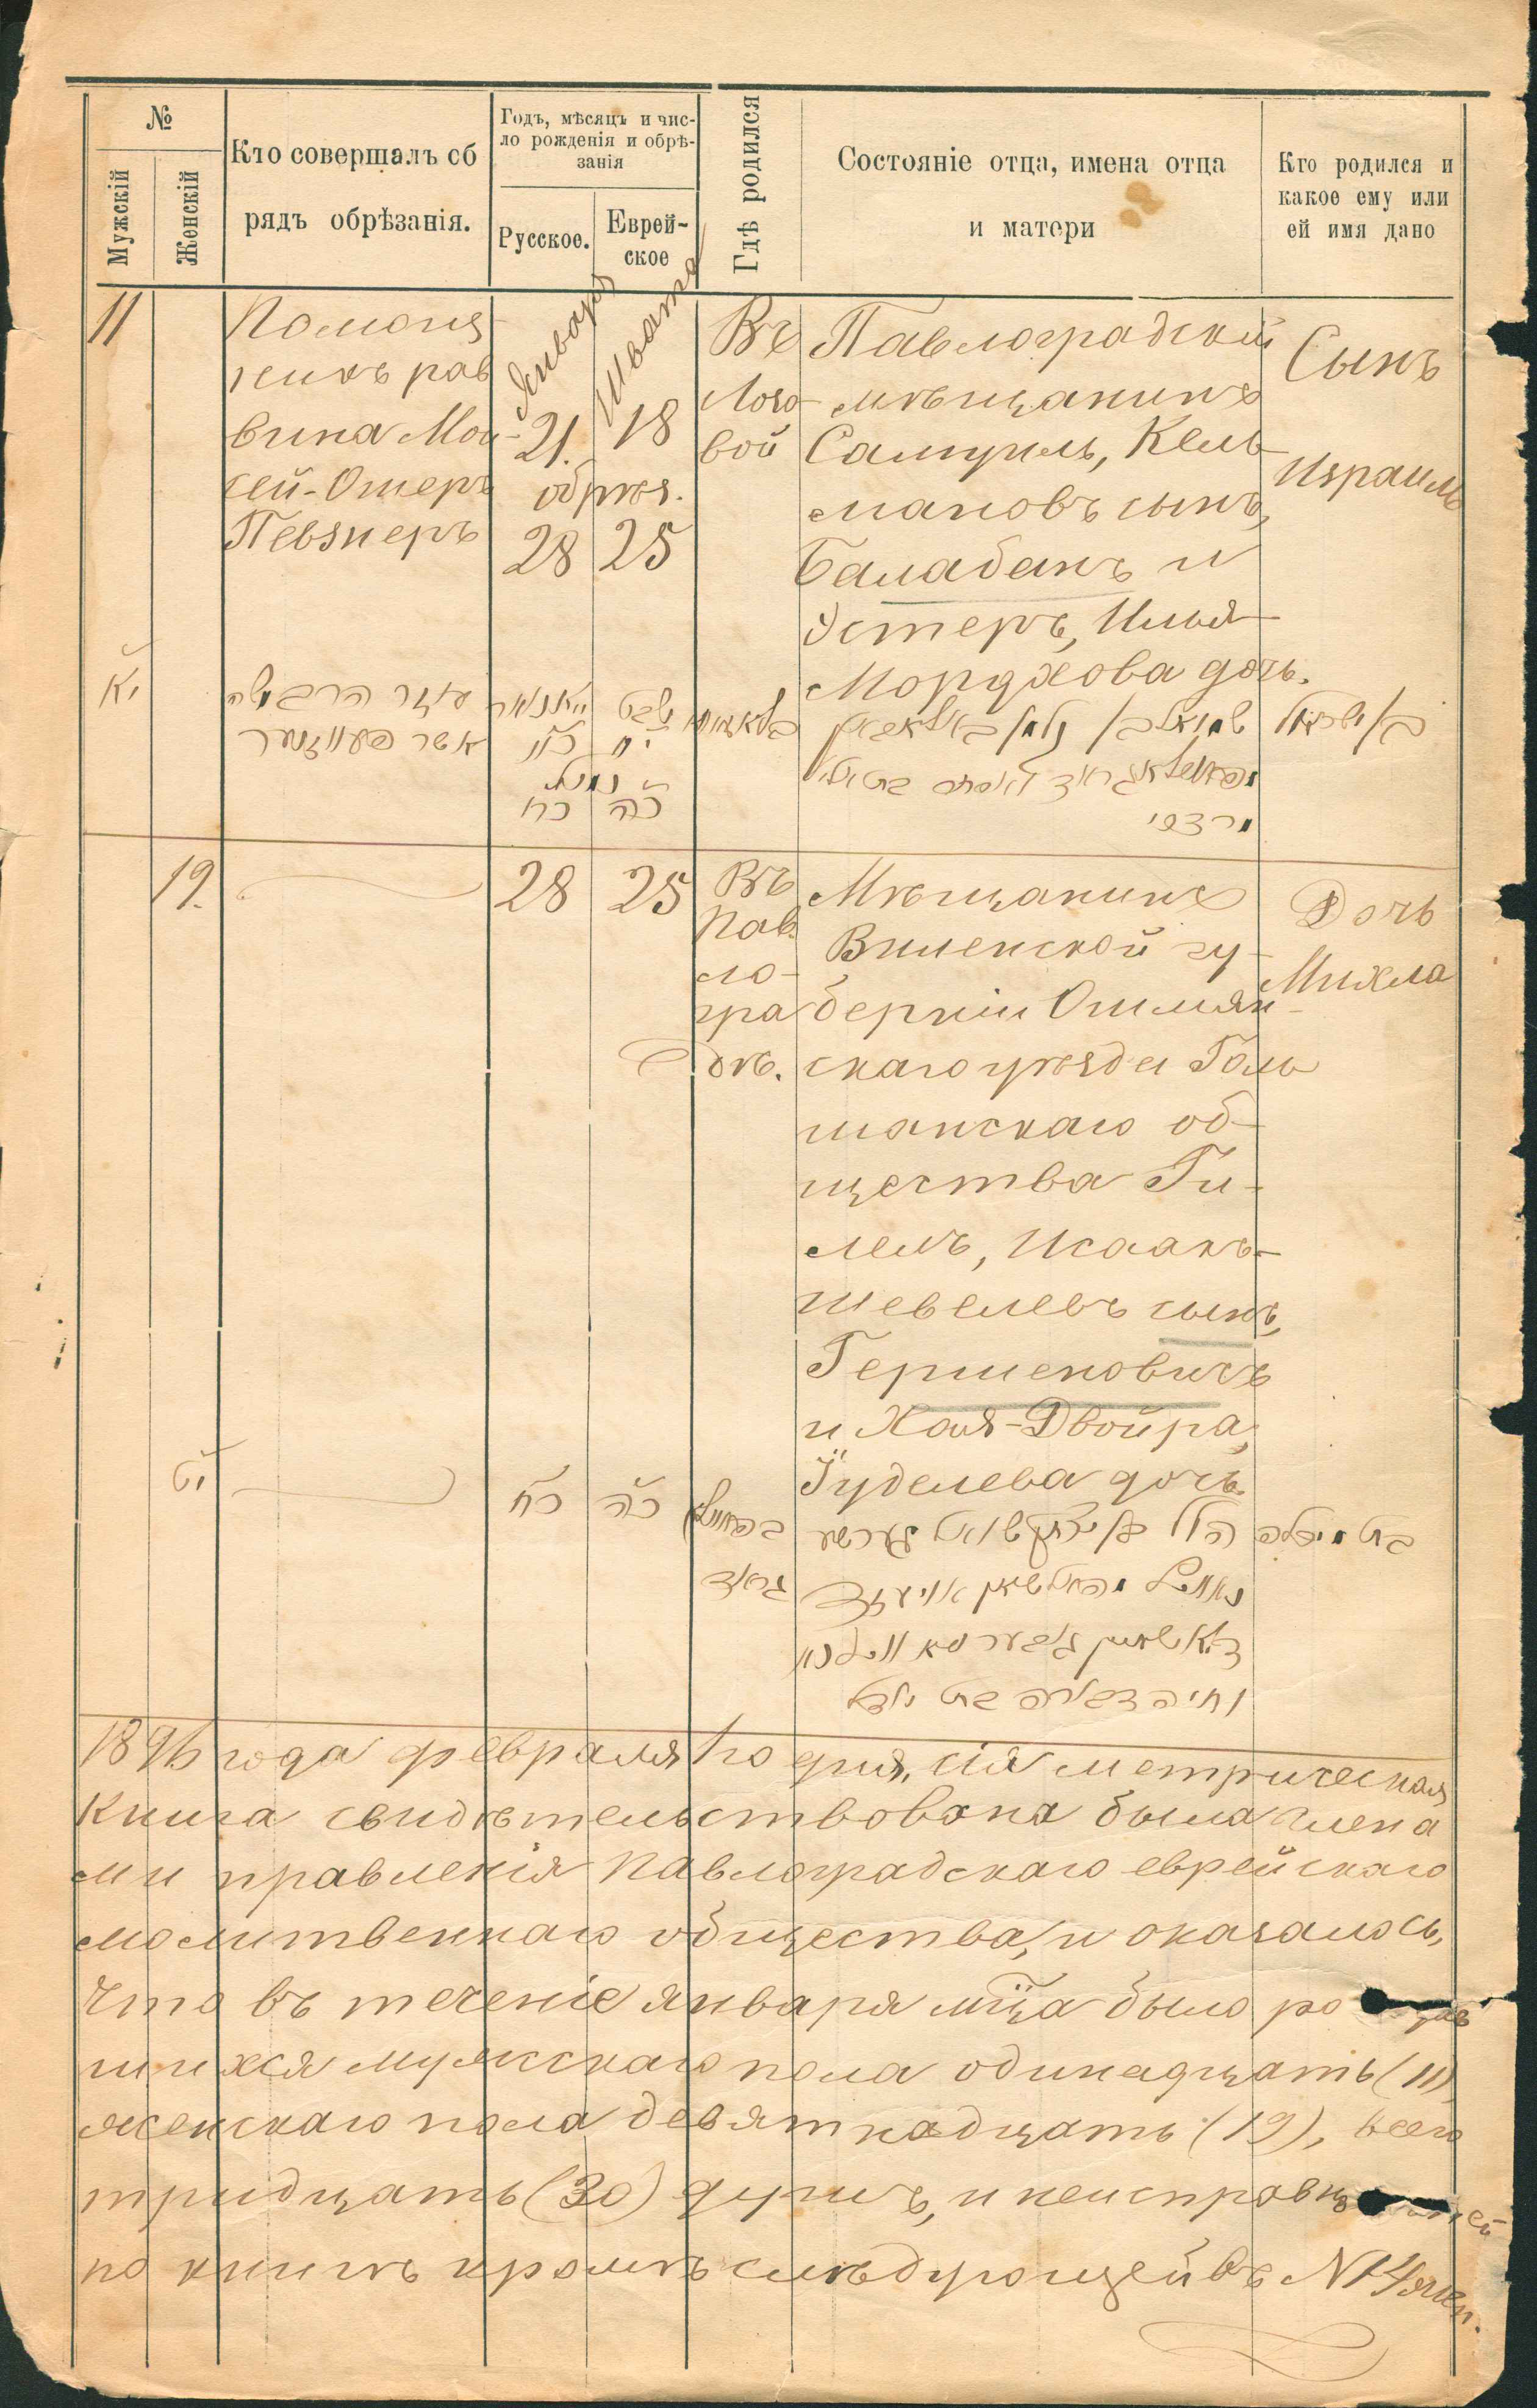 №
Мужскій
Женскій
Кто совершалъ об
рядъ обрѣзанія.
Годъ, мѣсяцъ и чис-
ло рожденія и обрѣ-
занія
Русское.
Еврей-
ское
Гдѣ родился
Состояніе отца, имена отца
и матери
Кто родился и
какое ему или
ей имя дано
11
Помощ
никъ рав
вина Мои-
сей-Ошеръ
Певзнеръ
Января
21.
обрѣз.
28
Швата
18
25
Въ
Лозо-
вой
Павлоградскій
мѣщанинъ
Самуилъ, Кель-
мановъ сынъ,
Балабанъ и
Эстеръ, Илья-
Мордхова дочь.
Сынъ
Израиль
יא
עוזר הרב משה
אשר פעווזנער
יאנואר
כא
נימול
כח
שבט
יח
כה
19.
28
25
Въ
Пав-
ло-
гра
дѣ.
Мѣщанинъ
Виленской гу-
берніи Ошмян-
скаго уѣзда Голь
шанскаго об-
щества Ги-
лелъ, Исаакъ-
Шевелевъ сынъ,
Гершеновичъ
и Хая-Двойра,
Іуделева дочь
Дочь
Михла
יט
כח
כה
גראד
וחיה דבורה בת יודל
1896 года февраля 1го дня, сія метрическая
книга свидѣтельствована была члена
ми правленія Павлоградскаго еврейскаго
молитвеннаго общества, и оказалось,
что въ теченіе января мца было ро
шихся мужскаго пола одинадцать (11)
женскаго пола девятнадцать (19), всего
тридцать (30) душъ, и неисправно
по книгѣ кромѣ слѣдующей въ N 14 жен.